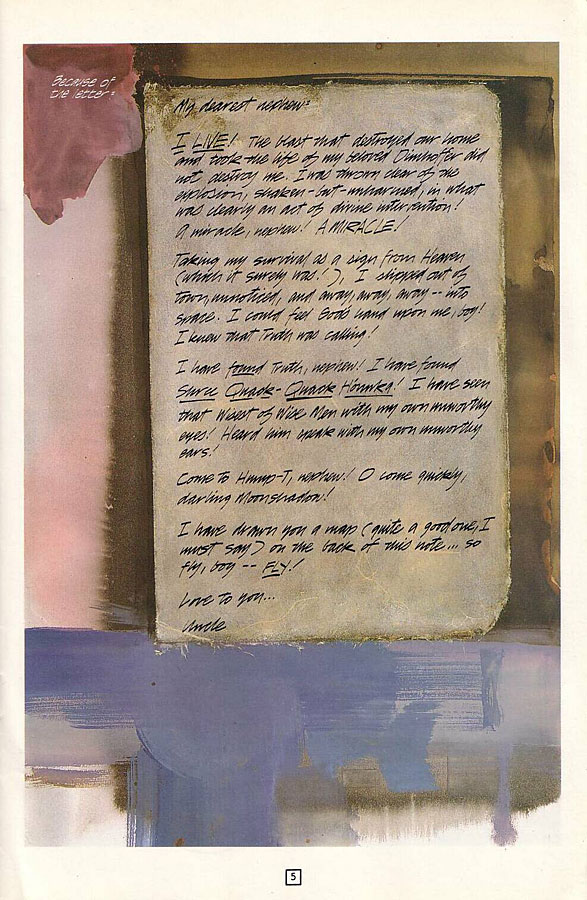 Because of
the letter:
My dearest nephew:
I LIVE! The blast that destroyed our home
and took the life of my beloved Dimhoffer did
not destroy me. I was thrown clear of the
explosion, shaken-but-unharmed, in what
was clearly an act of divine intervention!
A miracle, nephew! A MIRACLE!
Taking my survival as a sign from Heaven
(which it surely was!), I slipped out of
town, unnoticed, and away, away, away -- into
space. I could feel God's hand upon me, boy!
I knew that Truth was calling!
I have found Truth, nephew! I have found
Shree Quack-Quack Honnka! I have seen
that Wisest of Wise Men with my own unworthy
eyes! Heard him speak with my own unworthy
ears!
Come to Hump-T, nephew! O come quickly,
darling Moonshadow!
I have drawn you a map (quite a good one, I
must say) on the back of this note... so
fly, boy -- FLY!
Love to you...
Uncle
5